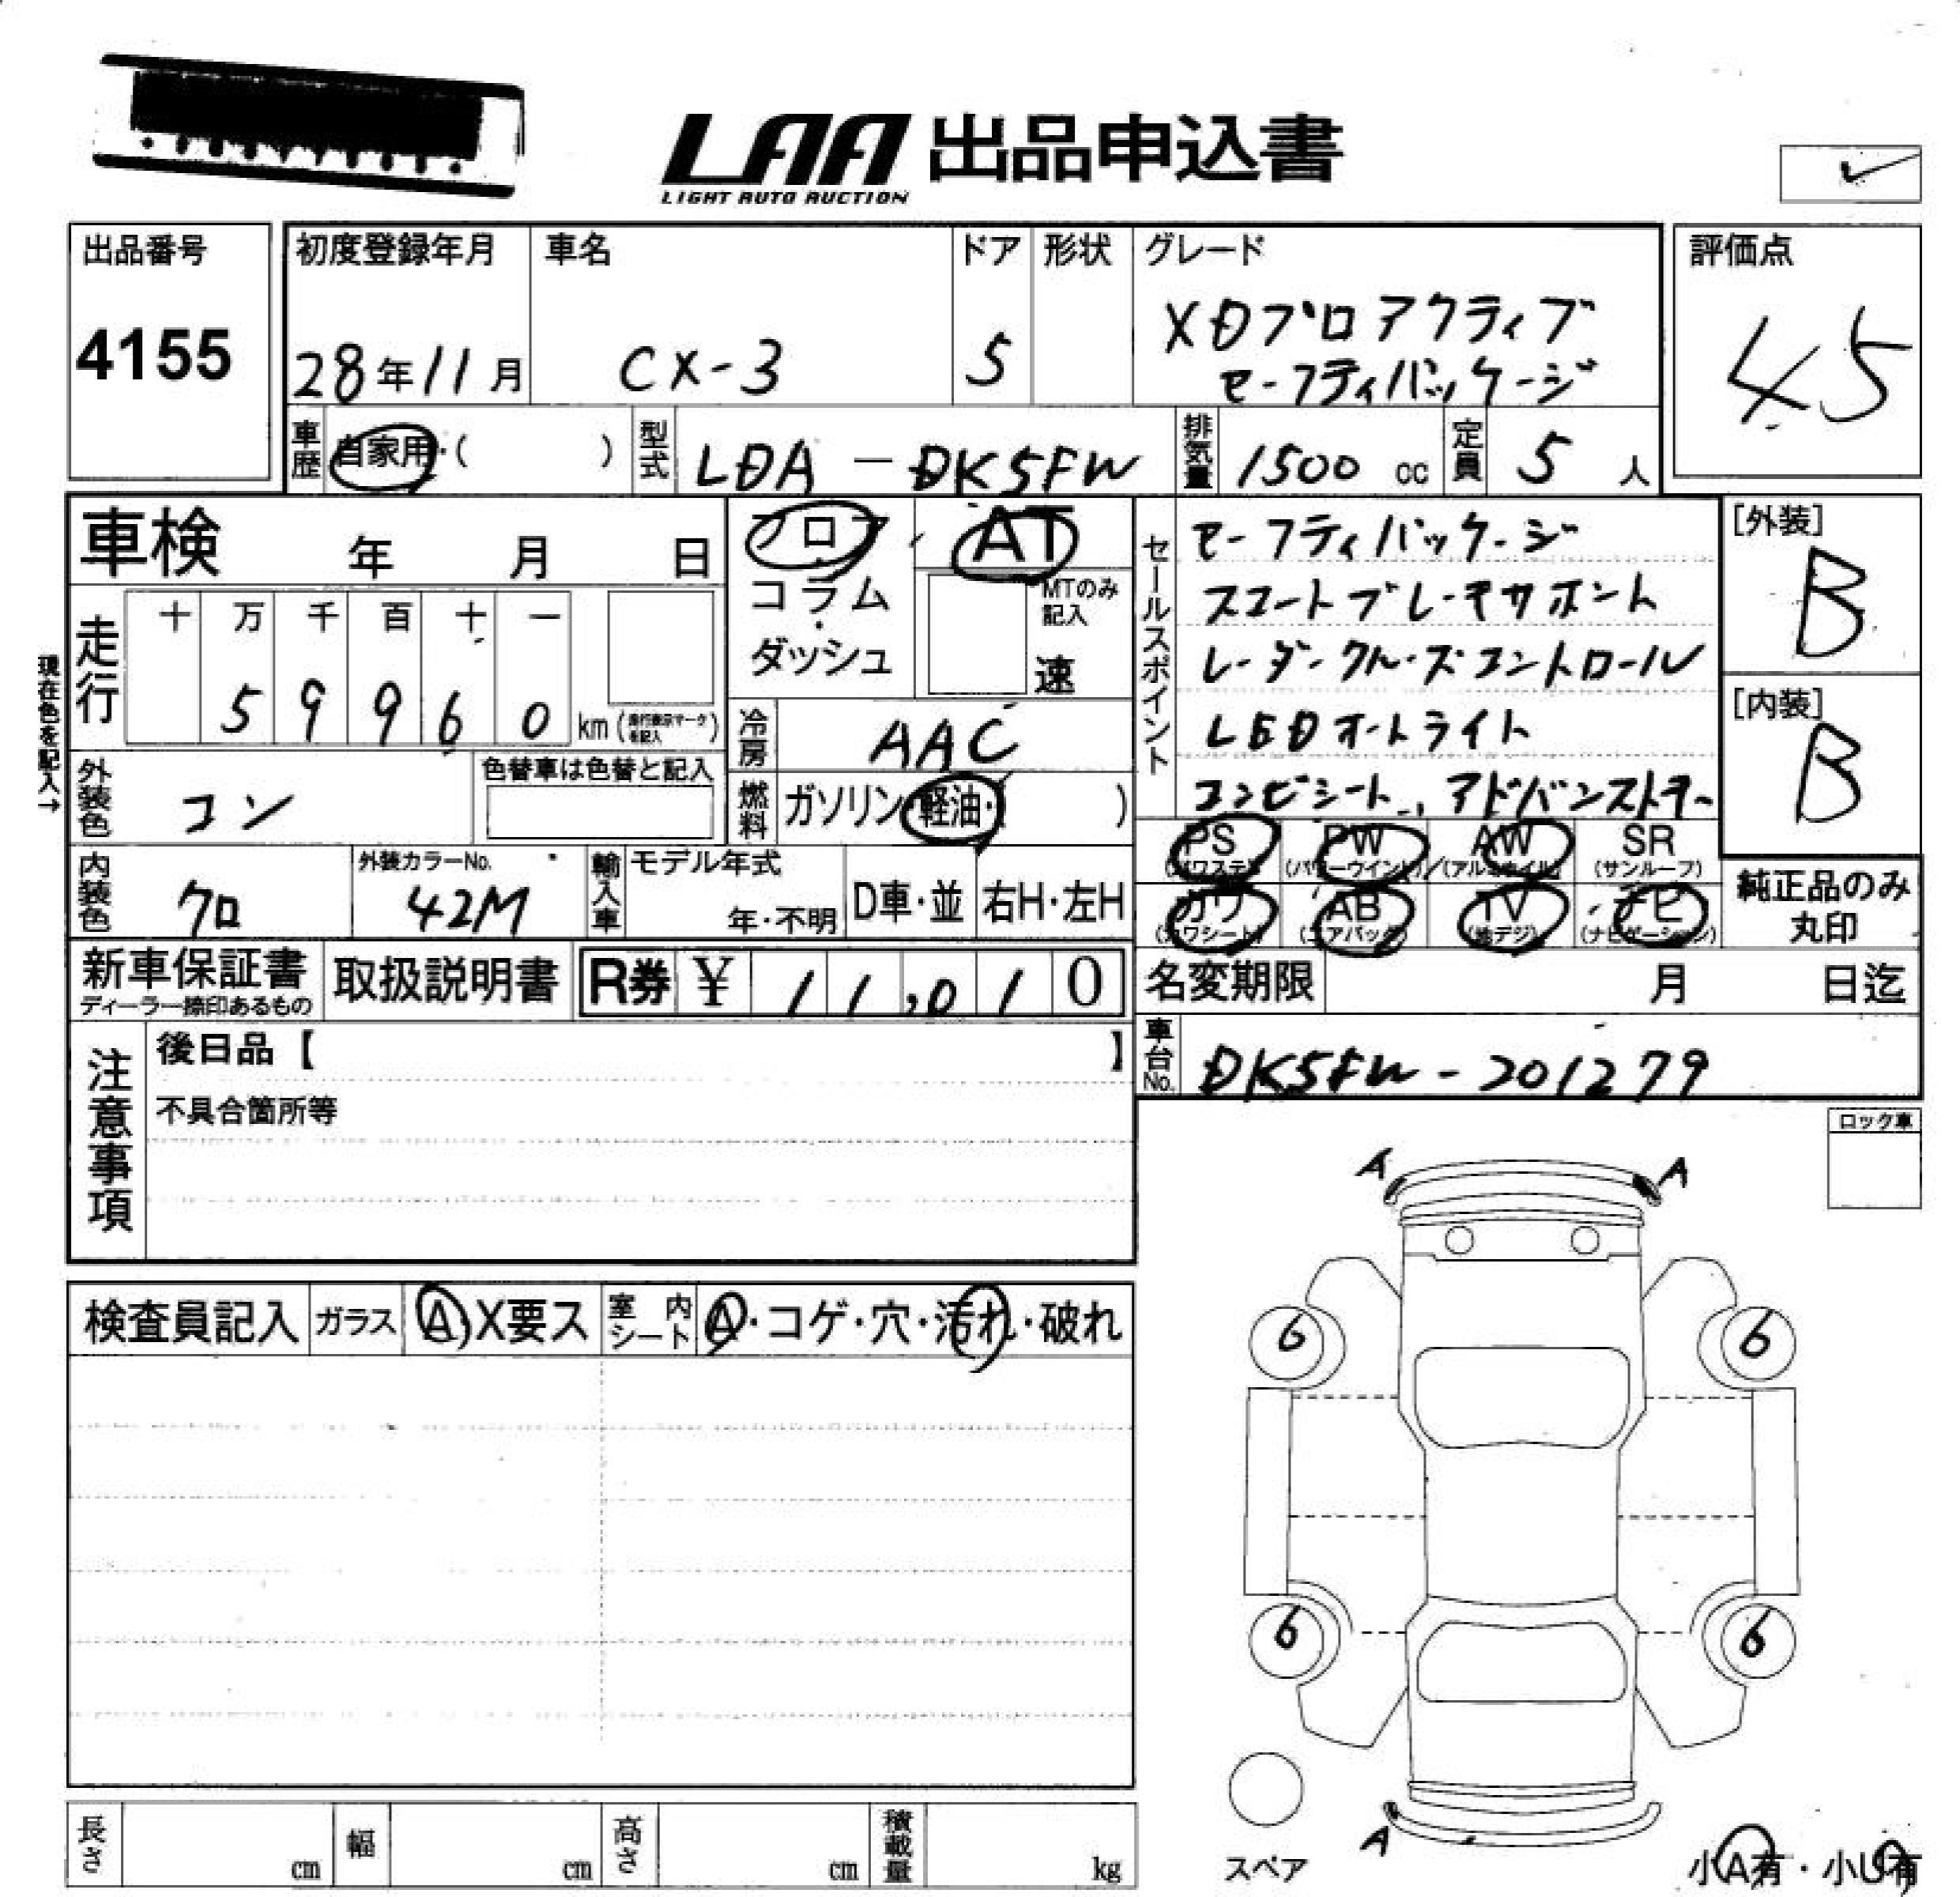 LAA 出品申込書
LIGHT AUTO AUCTION
出品番号
4155
初度登録年月
28年11月
車名
CX-3
ドア
5
形状
グレード
XDプロアクティブ
セーフティパッケージ
評価点
4.5
車歴 自家用・( )
型式 LDA-DK5FW
排気量 1500 cc
定員 5 人
車検 年 月 日
フロア・
コラム
・
ダッシュ
AT
MTのみ
記入
速
走行
十 万 千 百 十 一
5 9 9 6 0 km (走行表示マークを記入)
現在色を記入→
冷房 AAC
燃料 ガソリン・軽油・( )
外装色 コン
色替車は色替と記入
内装色 クロ
外装カラーNo.
42M
輸入車
モデル年式
年・不明
D車・並
右H・左H
セールスポイント
セーフティパッケージ
スマートブレーキサポート
レーダークルーズコントロール
LEDオートライト
コンビシート、アドバンストキー
[外装]
B
[内装]
B
PS (パワステ)
PW (パワーウインドウ)
AW (アルミホイル)
SR (サンルーフ)
カワ (カワシート)
AB (エアバック)
TV (地デジ)
ナビ (ナビゲーション)
純正品のみ
丸印
新車保証書
ディーラー捺印あるもの
取扱説明書
R券 ¥ 11,010
名変期限 月 日迄
車台No. DK5FW-201279
注意事項
後日品【 】
不具合箇所等
ロック車
検査員記入
ガラス A X要ス
室内シート A・コゲ・穴・汚れ・破れ
A A
6 6
6 6
A
スペア
小A有・小U有
長さ cm
幅 cm
高さ cm
積載量 kg